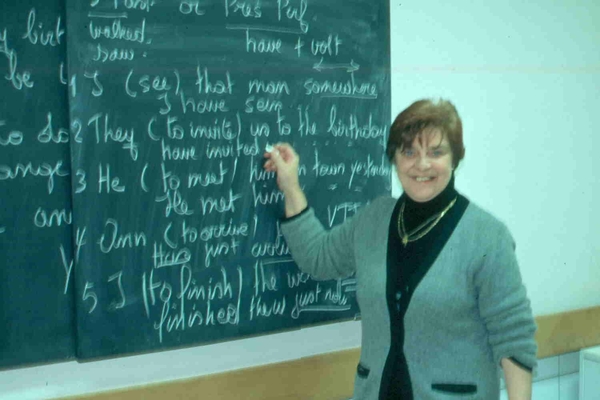 or Pres Perf
walked.
saw.
have + volt
y birt
be
to do
ange
an
y
1 I (see) that man somewhere
I have seen
2 They (to invite) us to the birthday
have invited
3 He (to meet) him in town yesterday
He met him
4 Ann (to arrive)
Has just
5 I (to finish) the
finished the w just now